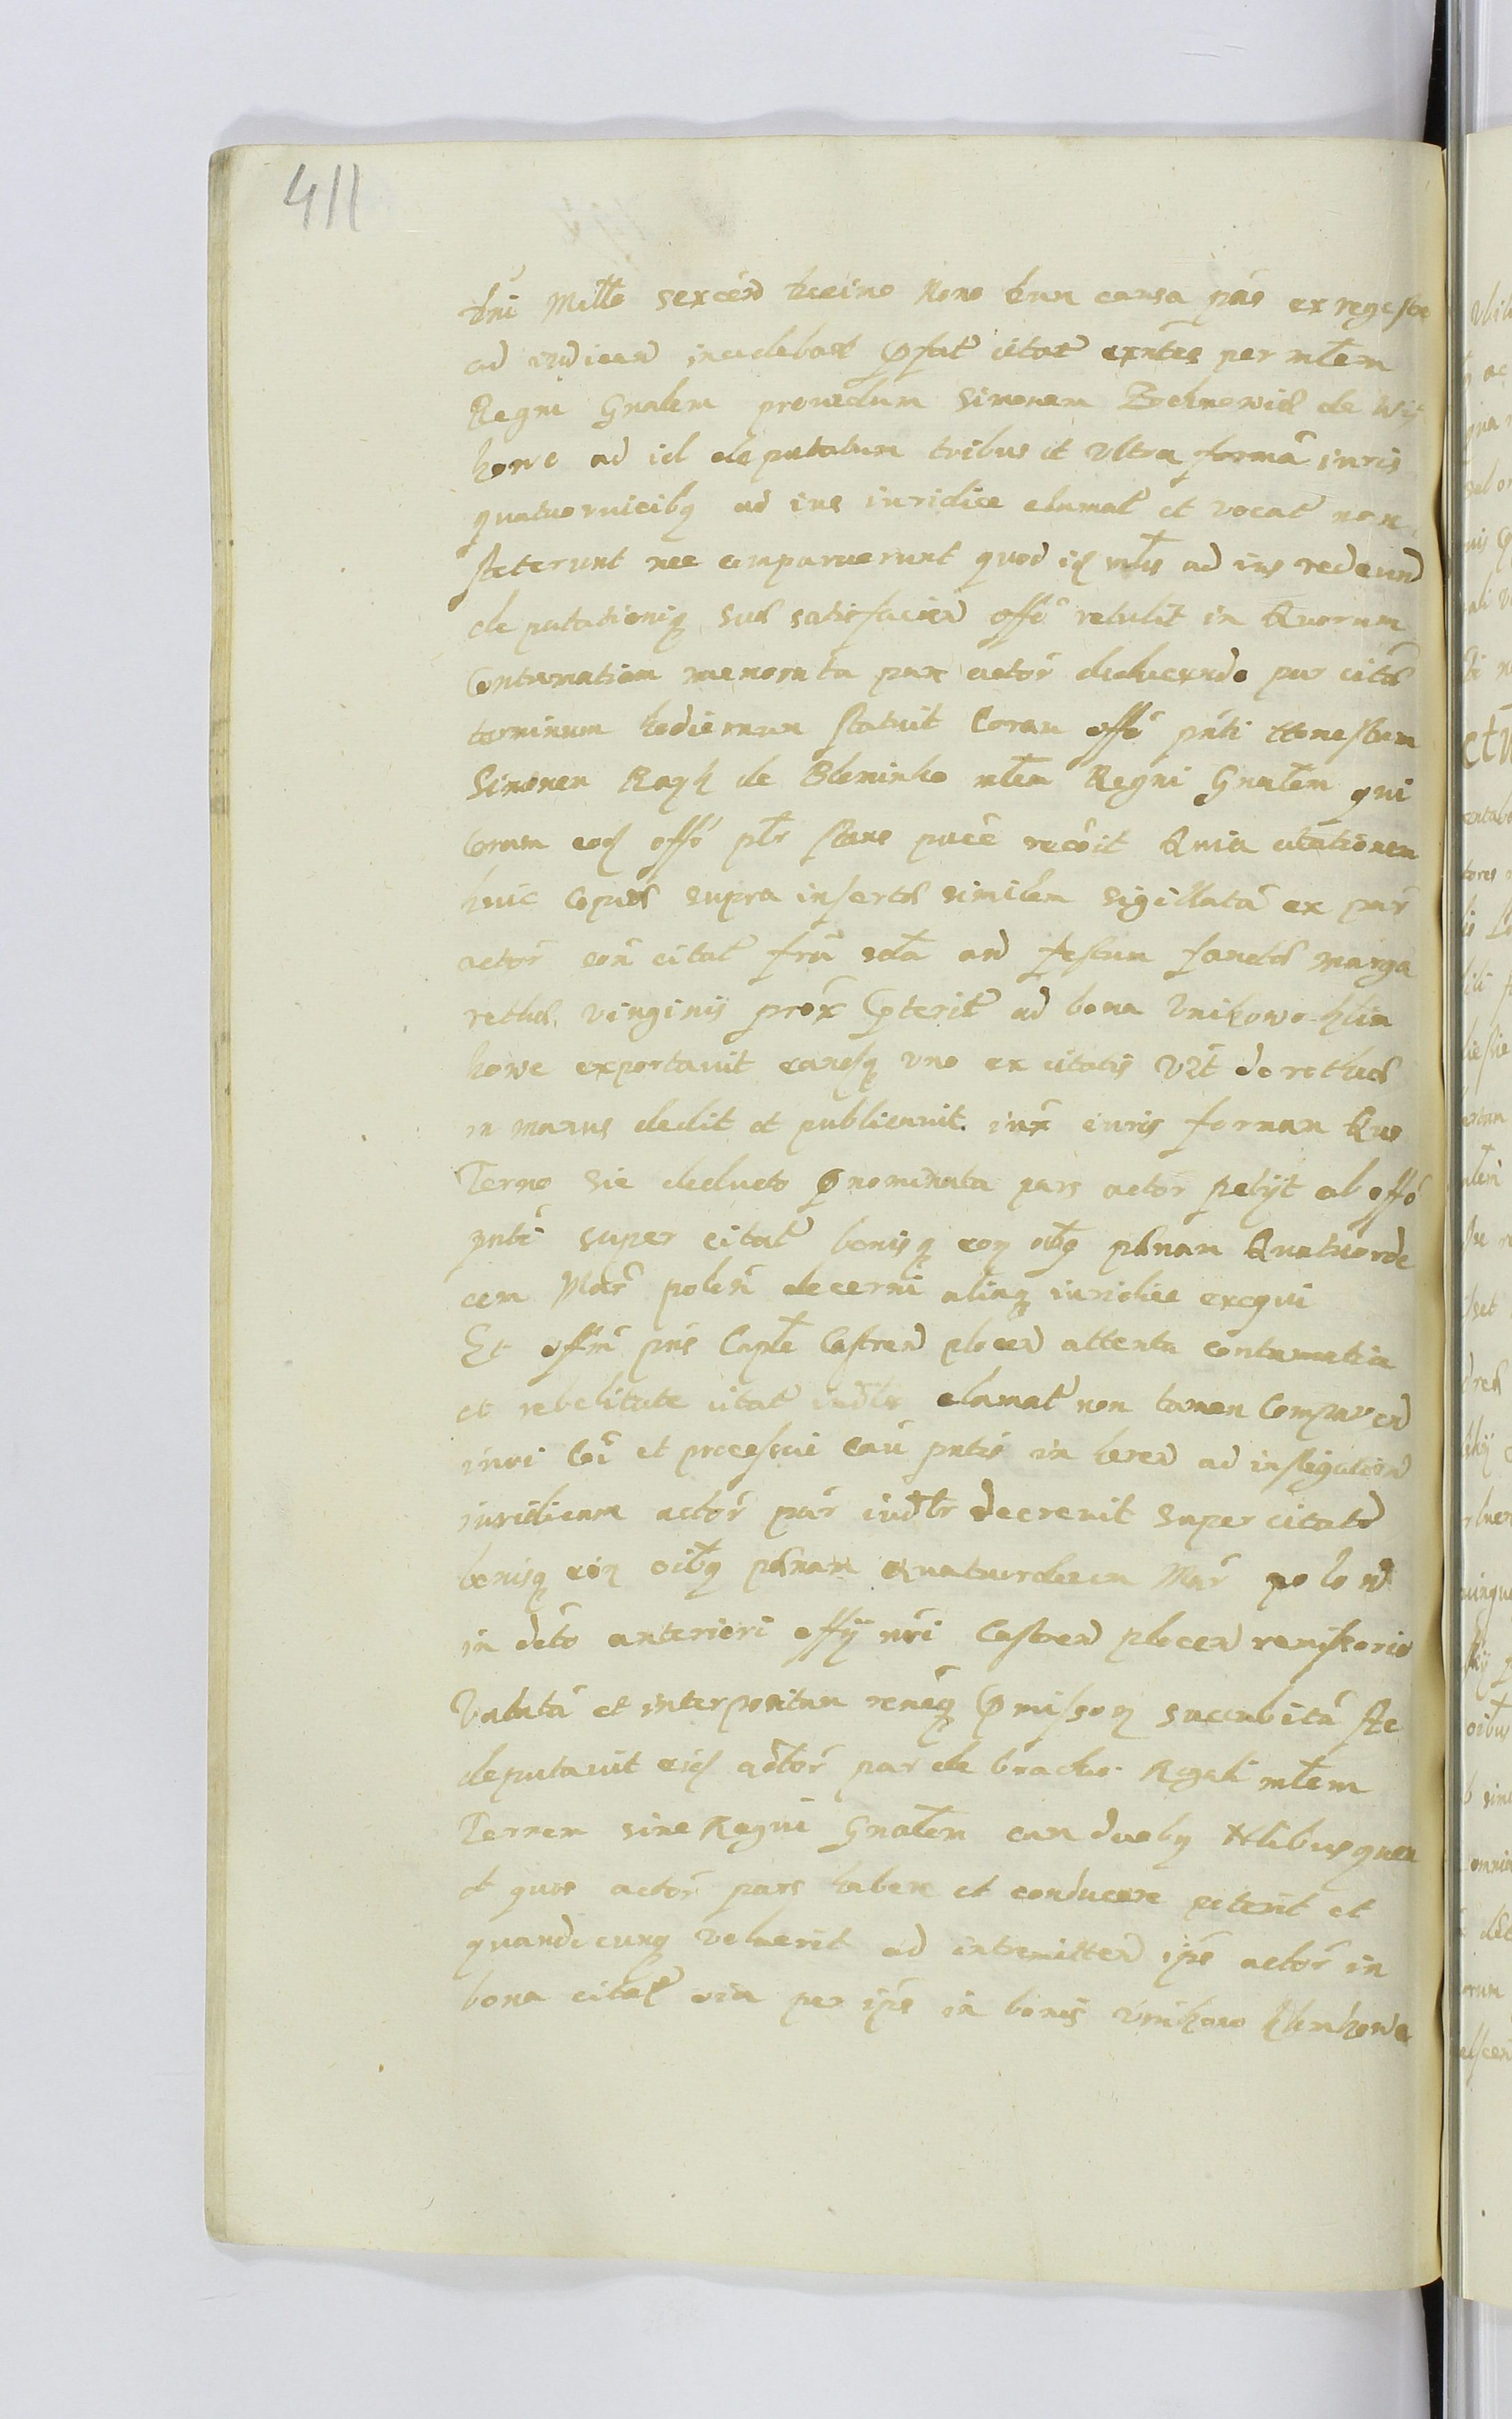 411
dni Millo sexcen decimo Nono dum causa pns ex regestro
ad iudican incidebat pfat citat exntes per mlem
Regni Gnalem providum Simonem Bochnowicz de Wis
howe ad id deputatum tribus et Ultra formã iuris
quatuorvicibq ad ius iuridice clamat et vocat non
steterunt nec comparuerunt quod idẽ mlis ad ius redeund
deputationiq suæ satisfacien offo retulit in Quorum
Contumatiam memorata pars actor deducendo per citæ
terminum hodiernum statuit Coram offo pnti Honestum
Simonem Kozÿ de Bleninko mlem Regni Gnalem qui
Coram eodẽ offo plr stans pucẽ recõit Quia citationem
huic Copiæ supra insertæ similem sigillatã ex par
actor eoñ citat friã scda an festum sanctæ marga
rethæ virginis prox pterit ad bona Unikowo Klim
kowe exportavit eandẽq uno ex citatis Uzt dorotheæ
in manus dedit et publicavit iux iuris forman Quo
Terno sic deducto pnominata pars actor petijt ab offo
pnti super citat bonisq eoꝝ oibq pænam Quatuorde
cem Mar polon decerni aliaq iuridice exequi
Et offm pns Caple Castren plocen attenta contumatia
et rebelitate citat iudlr clamat non tamen Comparen
iuri Coi et processui Cau pntis in heren ad instigatioñ
iuridicam actor par iudlr decrevit super citatis
bonisq eoꝝ oibq pænam Quatuordecim Mar polon
in dcto anteriori offij nri Castren plocen remissorio
Vadatã et interpositam reneq pmissoꝝ succubitã Ac
deputavit eidẽ actor par de brachio Regali mlem
Terren sive Regni Gnalem cum duobq Nlibus quem
et quos actor pars habere et conducere poterit et
quandocunq voluerit ad intromitten ipẽ actor in
bona citat oia per ipõs in bonis Unikowo Klimkowe